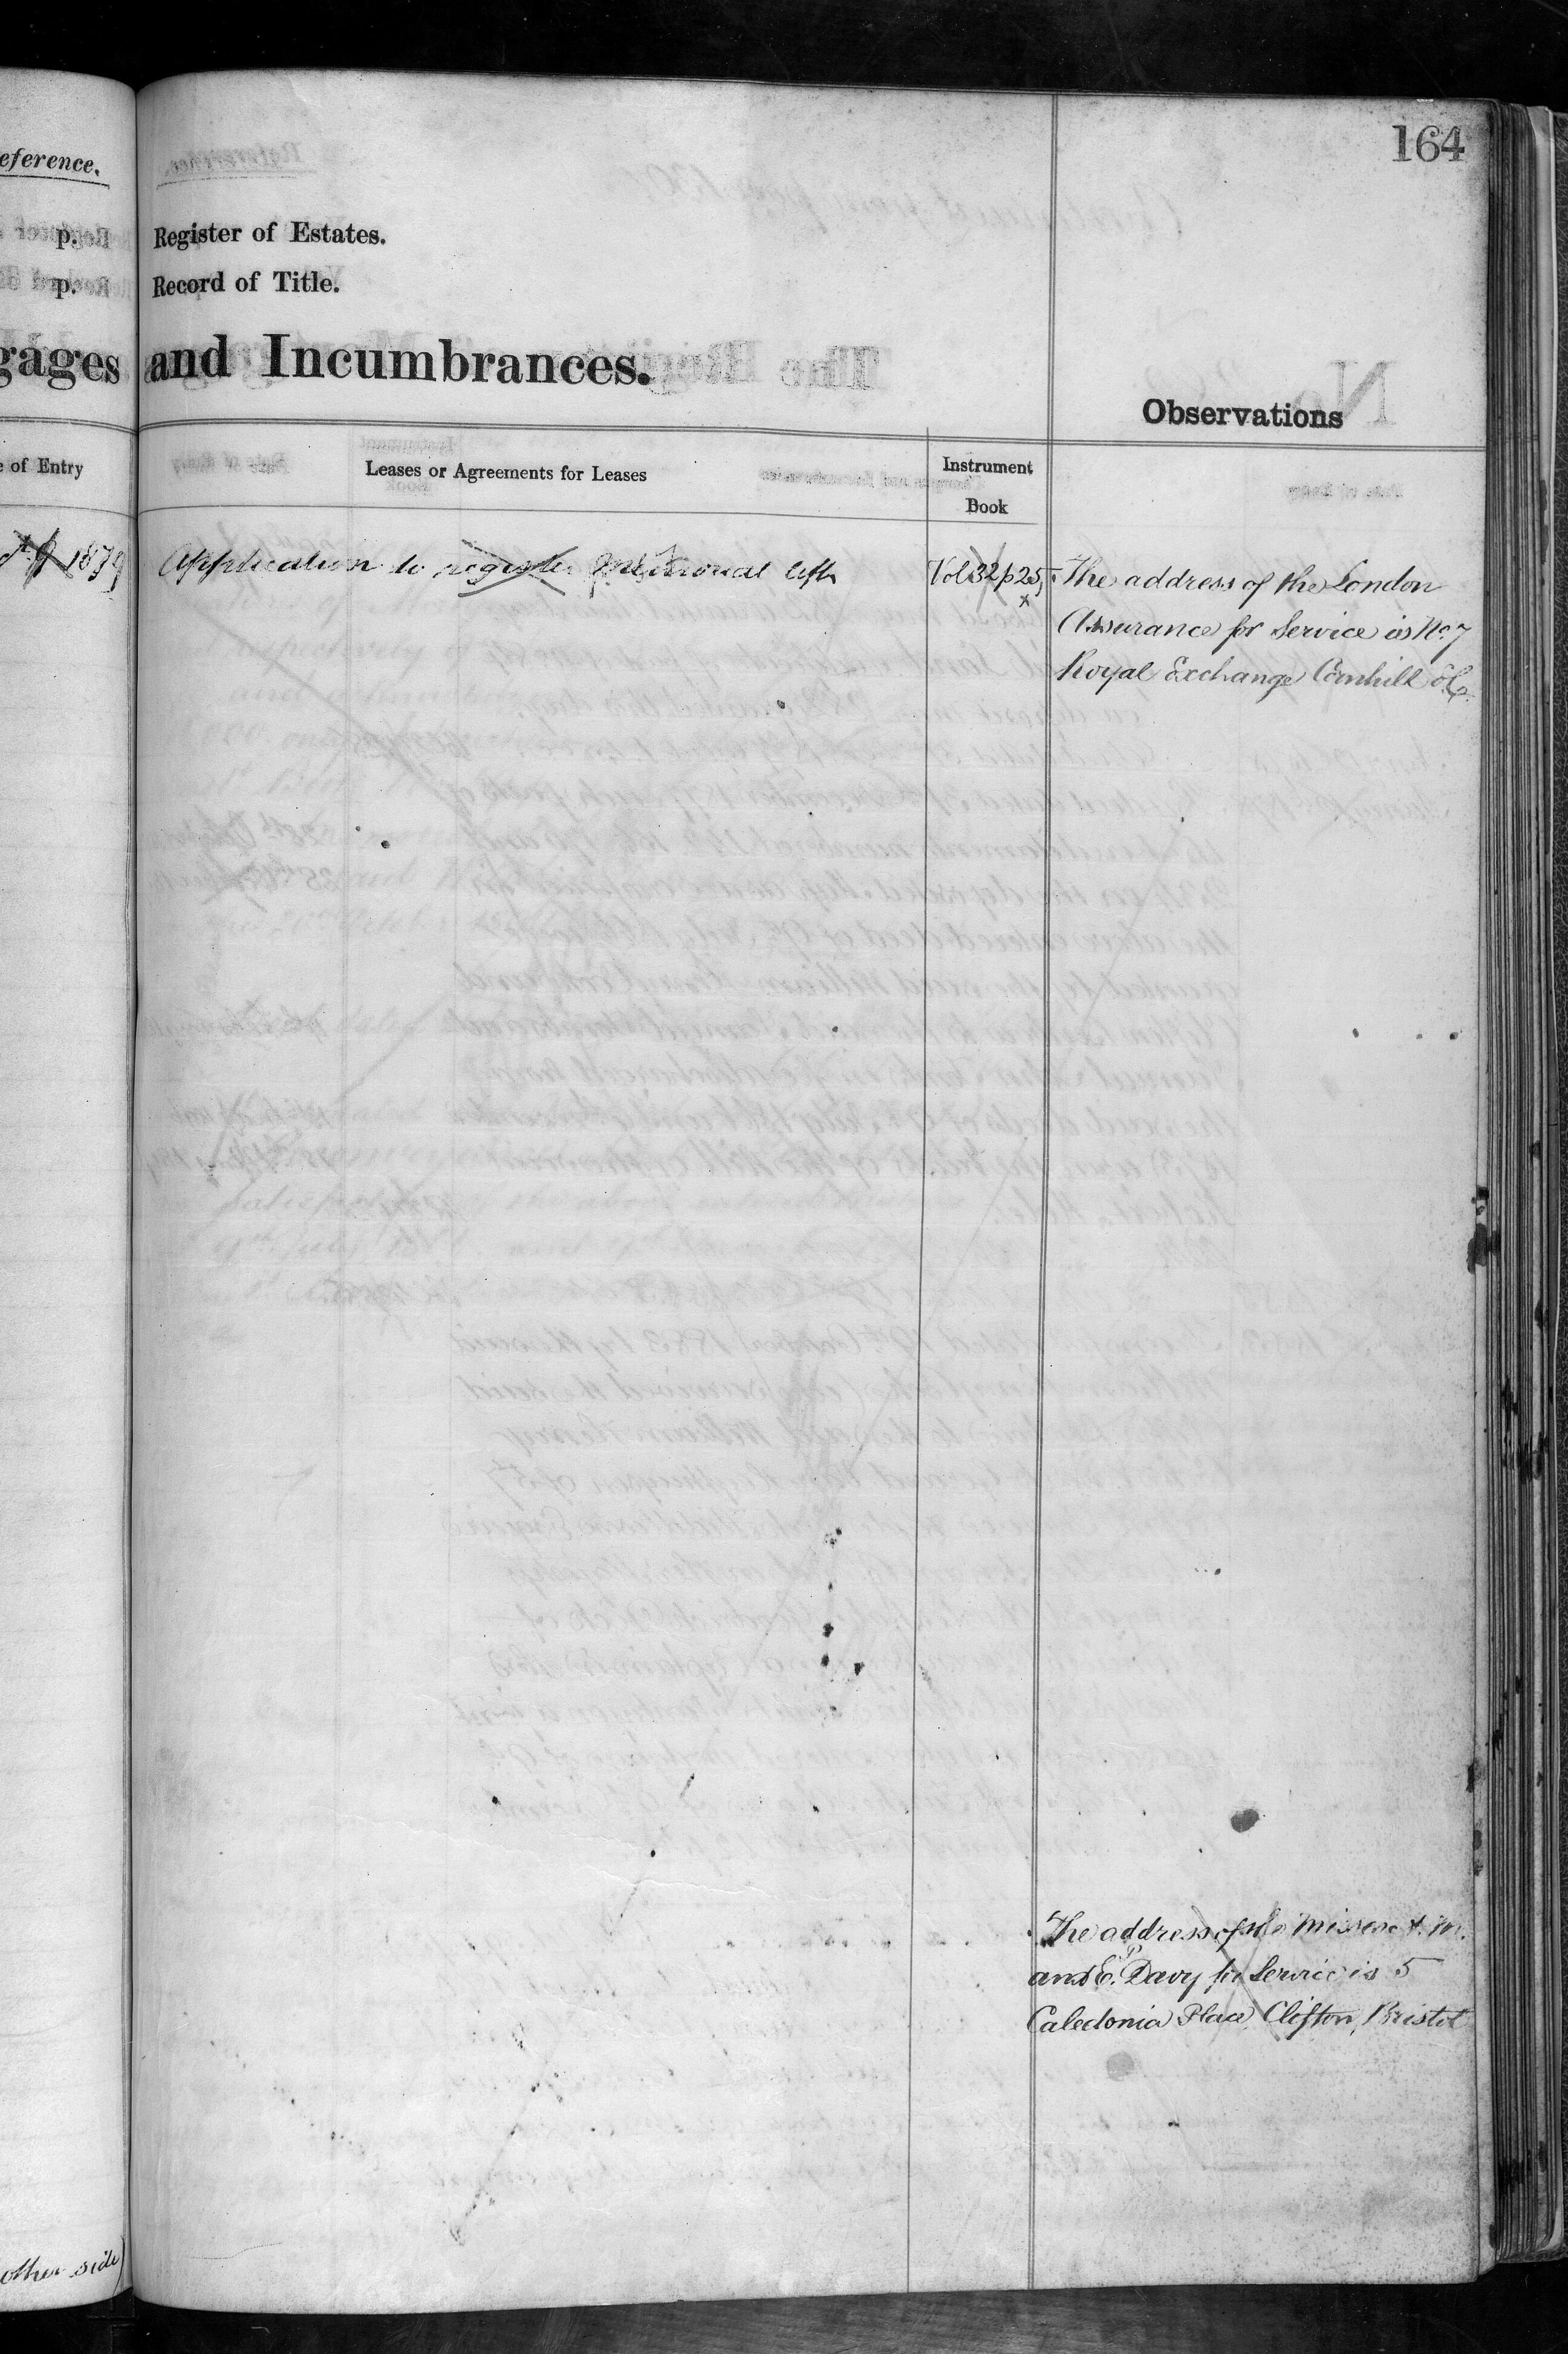 164
eference.
p. Register of Estates.
p. Record of Title.
gages and Incumbrances.
Observations
e of Entry
Leases or Agreements for Leases
Instrument
Book
1879
Application to register
Vol 32 p 25
The address of the London
Assurance for Service is No. 7
Royal Exchange Cornhill
The address of the Misses
and E. Davy for Service is 5
Caledonia Place Clifton, Bristol
other side